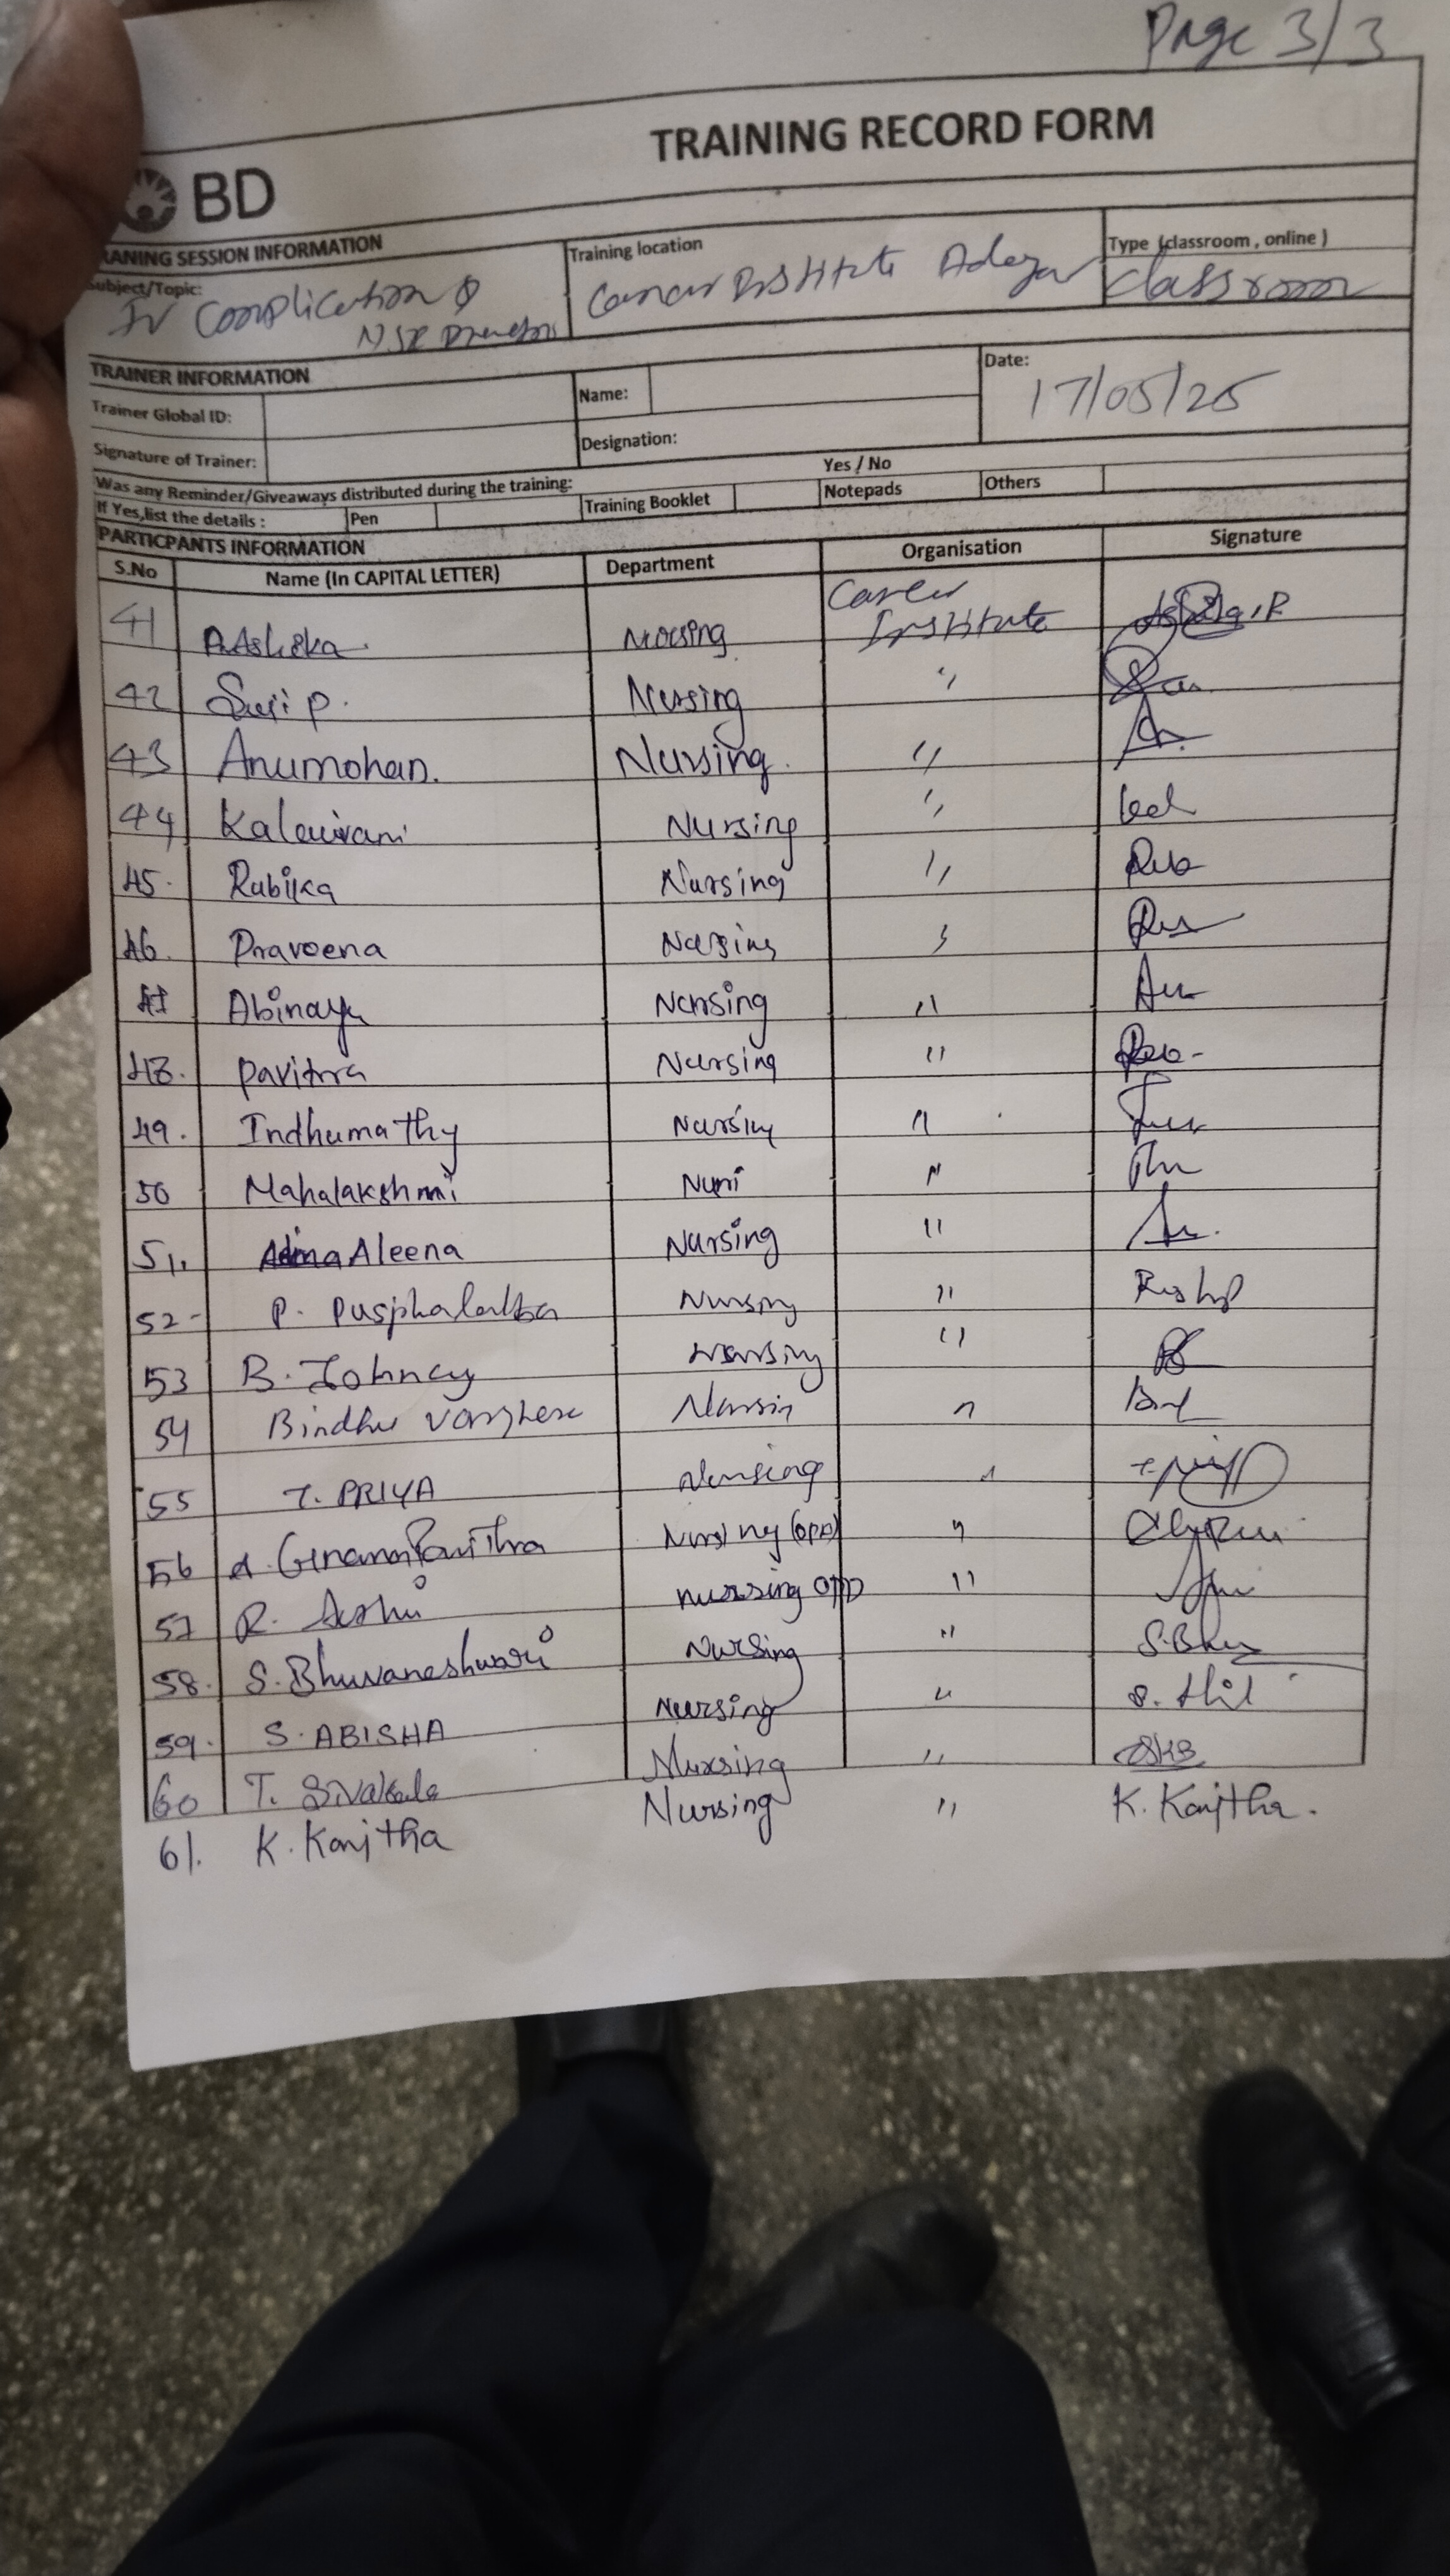 Page 3/3
TRAINING RECORD FORM
BD
RANING SESSION INFORMATION
Subject/Topic:
IV Complication &
NSI Prevention
Training location
Cancer Institute Adayar
Type (classroom , online )
Classroom
TRAINER INFORMATION
Trainer Global ID:
Name:
Date:
17/05/25
Signature of Trainer:
Designation:
Was any Reminder/Giveaways distributed during the training:
Yes / No
If Yes,list the details :
Pen
Training Booklet
Notepads
Others
PARTICPANTS INFORMATION
S.No Name (In CAPITAL LETTER) Department Organisation Signature
41 R.Ashika Nursing Cancer Institute
42 Suji P. Nursing "
43 Anumohan. Nursing. "
44 Kalaivani Nursing "
45. Rubika Nursing "
46. Praveena Nursing
47 Abinaya Nursing "
48. Pavithra Nursing "
49. Indhumathy Nursing "
50 Mahalakshmi "
51. Aleena Nursing "
52- P. Nursing "
53 B. Johncy Nursing "
54 Bindhu Varghese Nursin "
55 T. PRIYA Nursing "
56 Nursing (OPD) "
57 R. nursing OPD "
58. S.Bhuvaneshwari Nursing " S.Bhu
59. S. ABISHA Nursing "
60 T. Sivakala Nursing "
61. K. Kavitha Nursing " K. Kavitha.